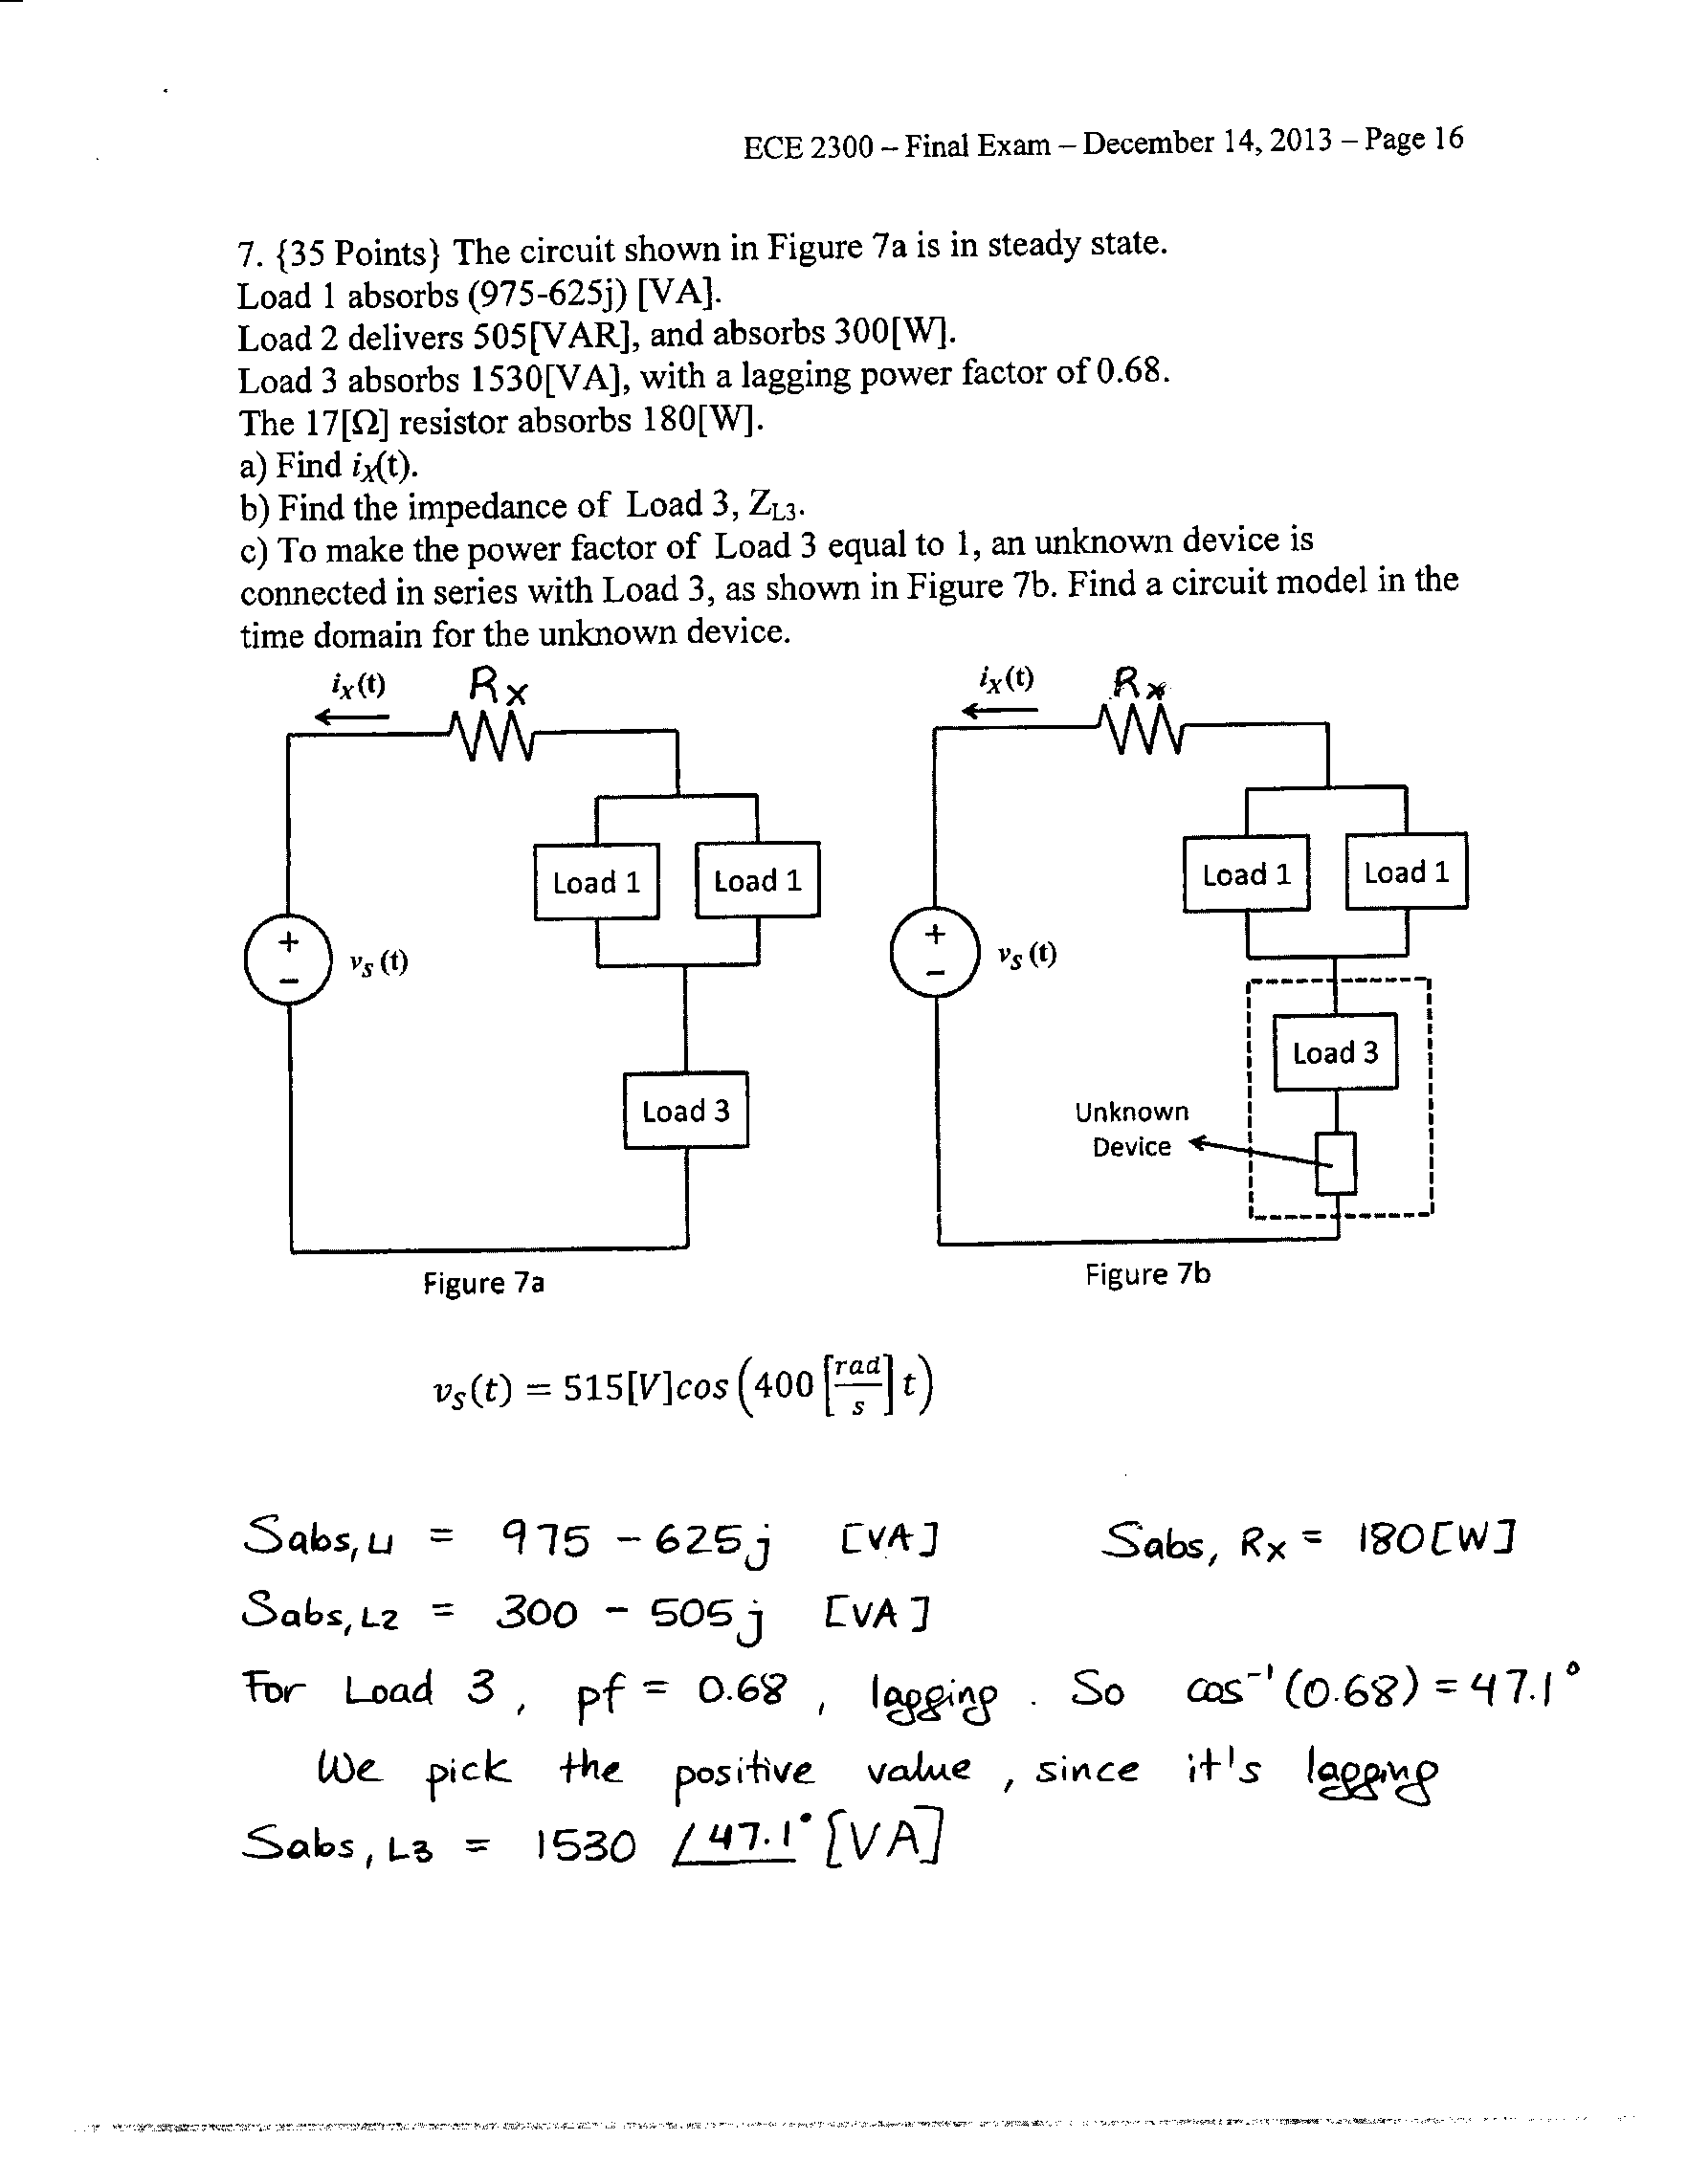 ECE 2300 – Final Exam – December 14, 2013 – Page 16
7. {35 Points} The circuit shown in Figure 7a is in steady state.
Load 1 absorbs (975-625j) [VA].
Load 2 delivers 505[VAR], and absorbs 300[W].
Load 3 absorbs 1530[VA], with a lagging power factor of 0.68.
The 17[Ω] resistor absorbs 180[W].
a) Find iX(t).
b) Find the impedance of Load 3, ZL3.
c) To make the power factor of Load 3 equal to 1, an unknown device is
connected in series with Load 3, as shown in Figure 7b. Find a circuit model in the
time domain for the unknown device.
iX(t)
Rx
Load 1
Load 1
+
−
vS (t)
Load 3
Figure 7a
iX(t)
Rx
Load 1
Load 1
+
−
vS (t)
Load 3
Unknown
Device
Figure 7b
vS(t) = 515[V]cos(400[rad/s]t)
Sabs, L1 = 975 - 625j [VA] Sabs, Rx = 180[W]
Sabs, L2 = 300 - 505j [VA]
For Load 3, pf = 0.68, lagging. So cos⁻¹(0.68) = 47.1°
We pick the positive value, since it's lagging
Sabs, L3 = 1530 ∠47.1° [VA]